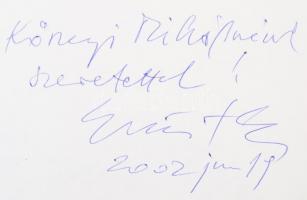 Kőszegi Mihálynénak
szeretettel!
2002 jun 19